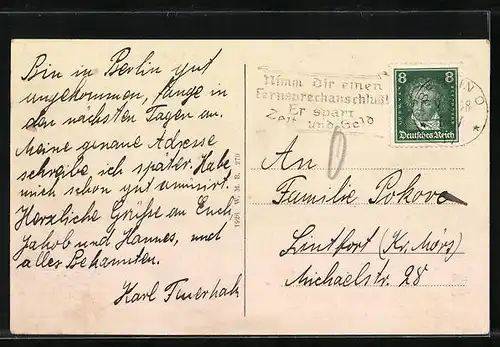 Bin in Berlin gut
angekommen, fange in
den nächsten Tagen an.
Meine genaue Adresse
schreibe ich später. Habe
mich schon gut amüsirt.
Herzliche Grüße an Euch,
Jakob und Hannes, und
alle Bekannten.
Karl Feuerhak
1926 W. M. B. 270
Nimm Dir einen
Fernsprechanschluß!
Er spart
Zeit und Geld
8 8
Deutsches Reich
An
Familie Pokove
Lintfort (Kr. Mörs)
Michaelstr. 28